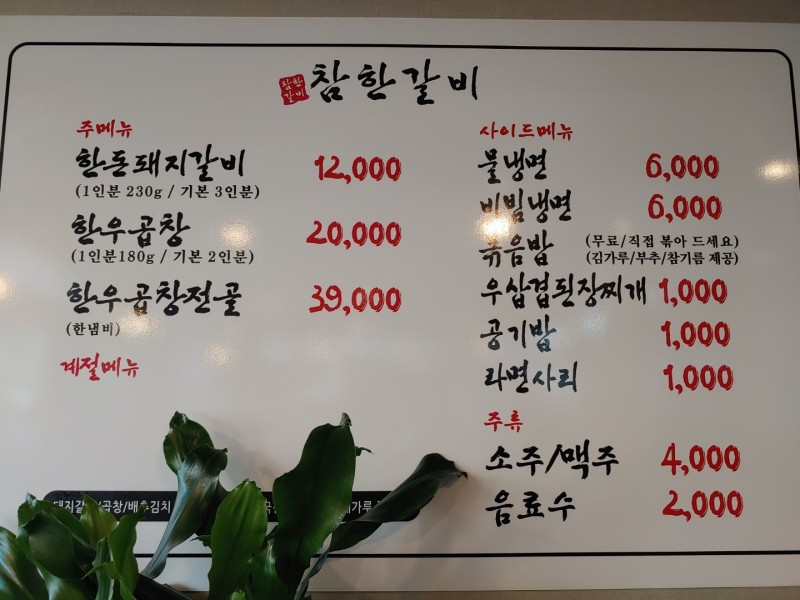 참한
갈비
참한갈비
주메뉴
한돈돼지갈비 12,000
(1인분 230g / 기본 3인분)
한우곱창 20,000
(1인분180g / 기본 2인분)
한우곱창전골 39,000
(한냄비)
계절메뉴
사이드메뉴
물냉면 6,000
비빔냉면 6,000
볶음밥 (무료/직접 볶아 드세요)
(김가루/부추/참기름 제공)
우삼겹된장찌개 1,000
공기밥 1,000
라면사리 1,000
주류
소주/맥주 4,000
음료수 2,000
곱창/배추김치